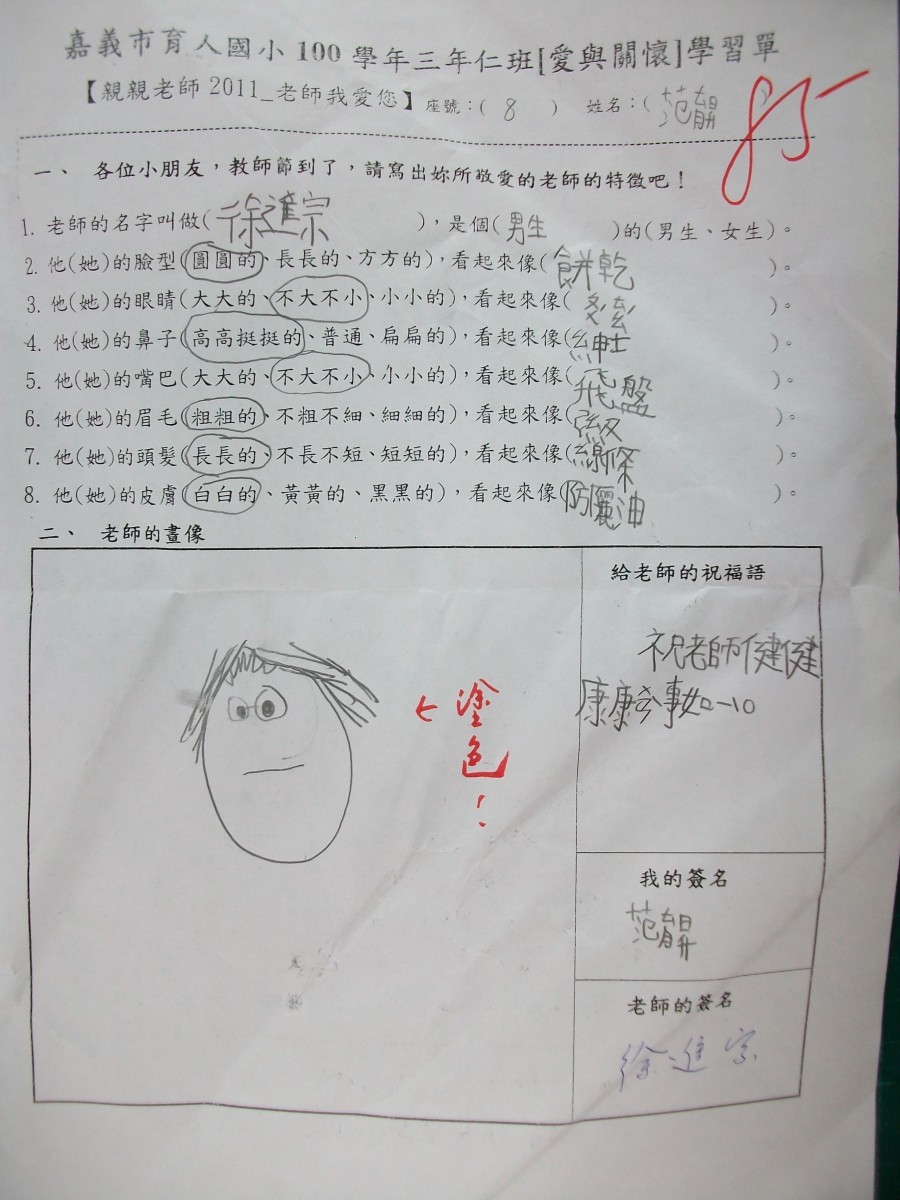 嘉義市育人國小100學年三年仁班[愛與關懷]學習單
【親親老師2011_老師我愛您】座號:( 8 ) 姓名:( 范 )
85
一、 各位小朋友,教師節到了,請寫出妳所敬愛的老師的特徵吧!
1. 老師的名字叫做(徐進宗),是個(男生)的(男生、女生)。
2. 他(她)的臉型(圓圓的、長長的、方方的),看起來像(餅乾)。
3. 他(她)的眼睛(大大的、不大不小、小小的),看起來像( )。
4. 他(她)的鼻子(高高挺挺的、普通、扁扁的),看起來像(紳士)。
5. 他(她)的嘴巴(大大的、不大不小、小小的),看起來像(飛盤)。
6. 他(她)的眉毛(粗粗的、不粗不細、細細的),看起來像( )。
7. 他(她)的頭髮(長長的、不長不短、短短的),看起來像(線條)。
8. 他(她)的皮膚(白白的、黃黃的、黑黑的),看起來像(防曬油)。
二、 老師的畫像
給老師的祝福語
祝老師健健
康康 事如一10
塗色!
我的簽名
范
老師的簽名
徐進宗